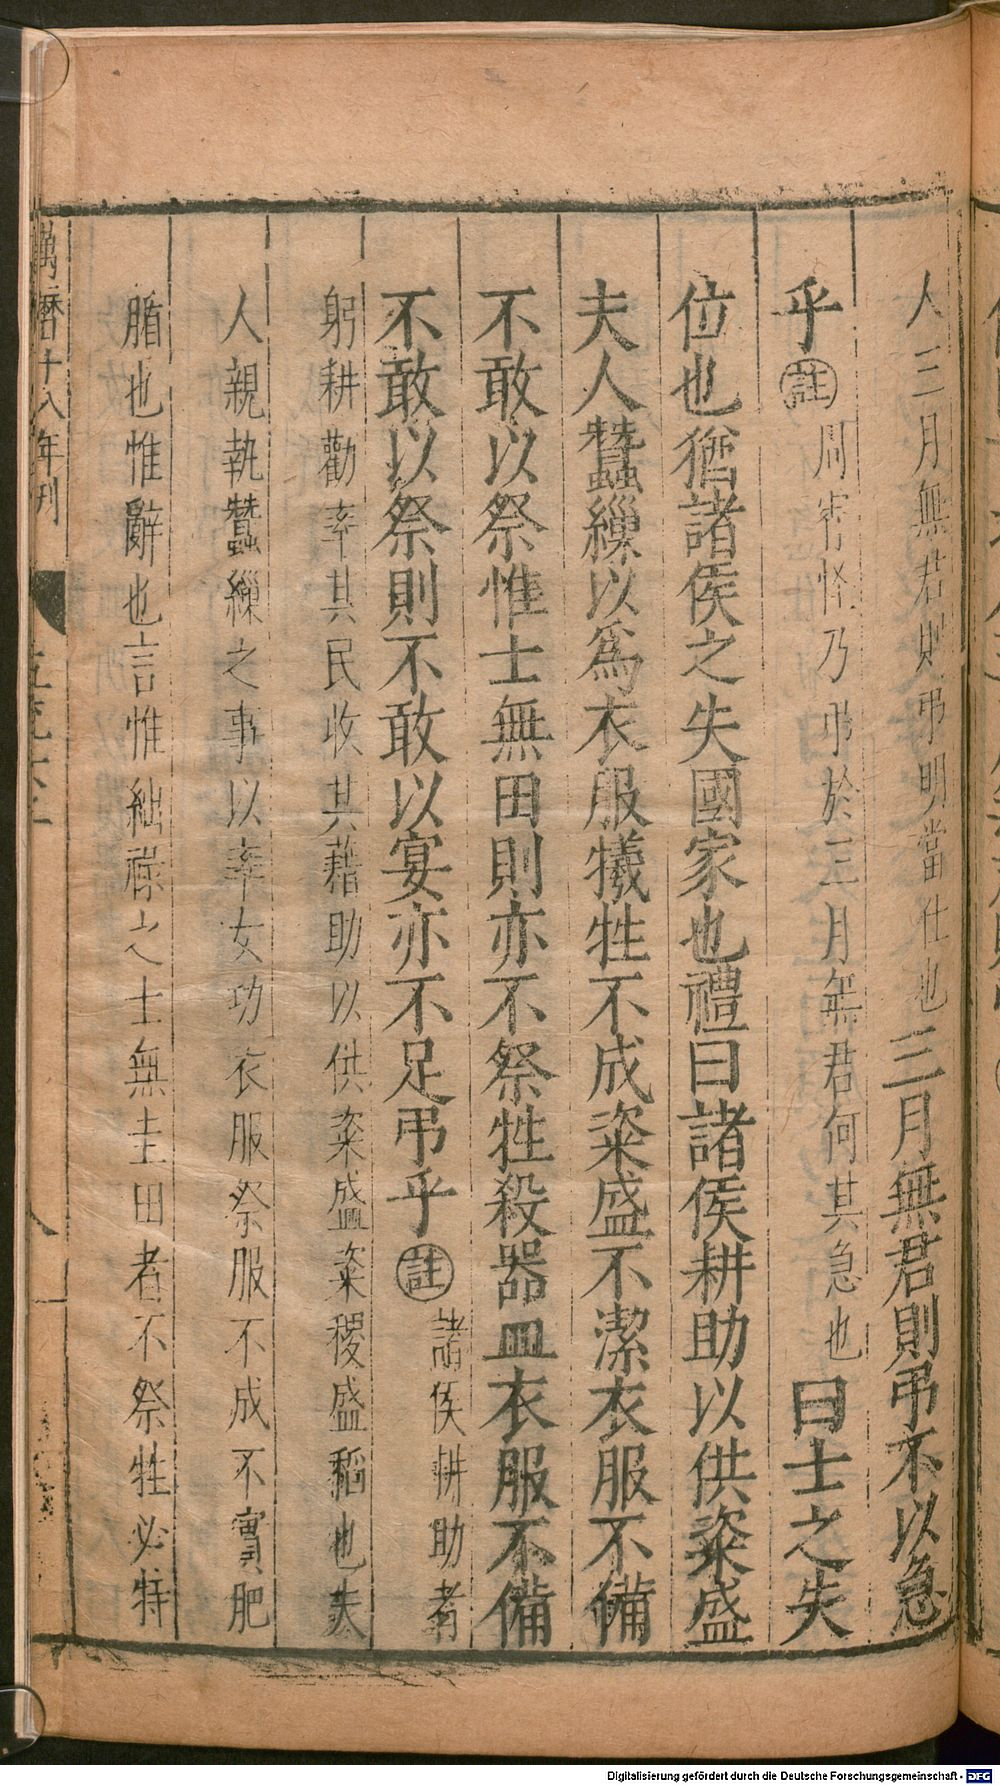 人三月無君則弔明當仕也三月無君則弔不以急
乎註周霄怪乃弔於三月無君何其急也曰士之失
位也猶諸侯之失國家也禮曰諸侯耕助以供粢盛
夫人蠶繅以爲衣服犧牲不成粢盛不潔衣服不備
不敢以祭惟士無田則亦不祭牲殺器皿衣服不備
不敢以祭則不敢以宴亦不足弔乎註諸侯耕助者
躬耕勸率其民收其藉助以供粢盛粢稷盛稻也夫
人親執蠶繅之事以率女功衣服祭服不成不實肥
腯也惟辭也言惟絀祿之士無圭田者不祭牲必特
萬曆十八年刊
Digitalisierung gefördert durch die Deutsche Forschungsgemeinschaft - DFG